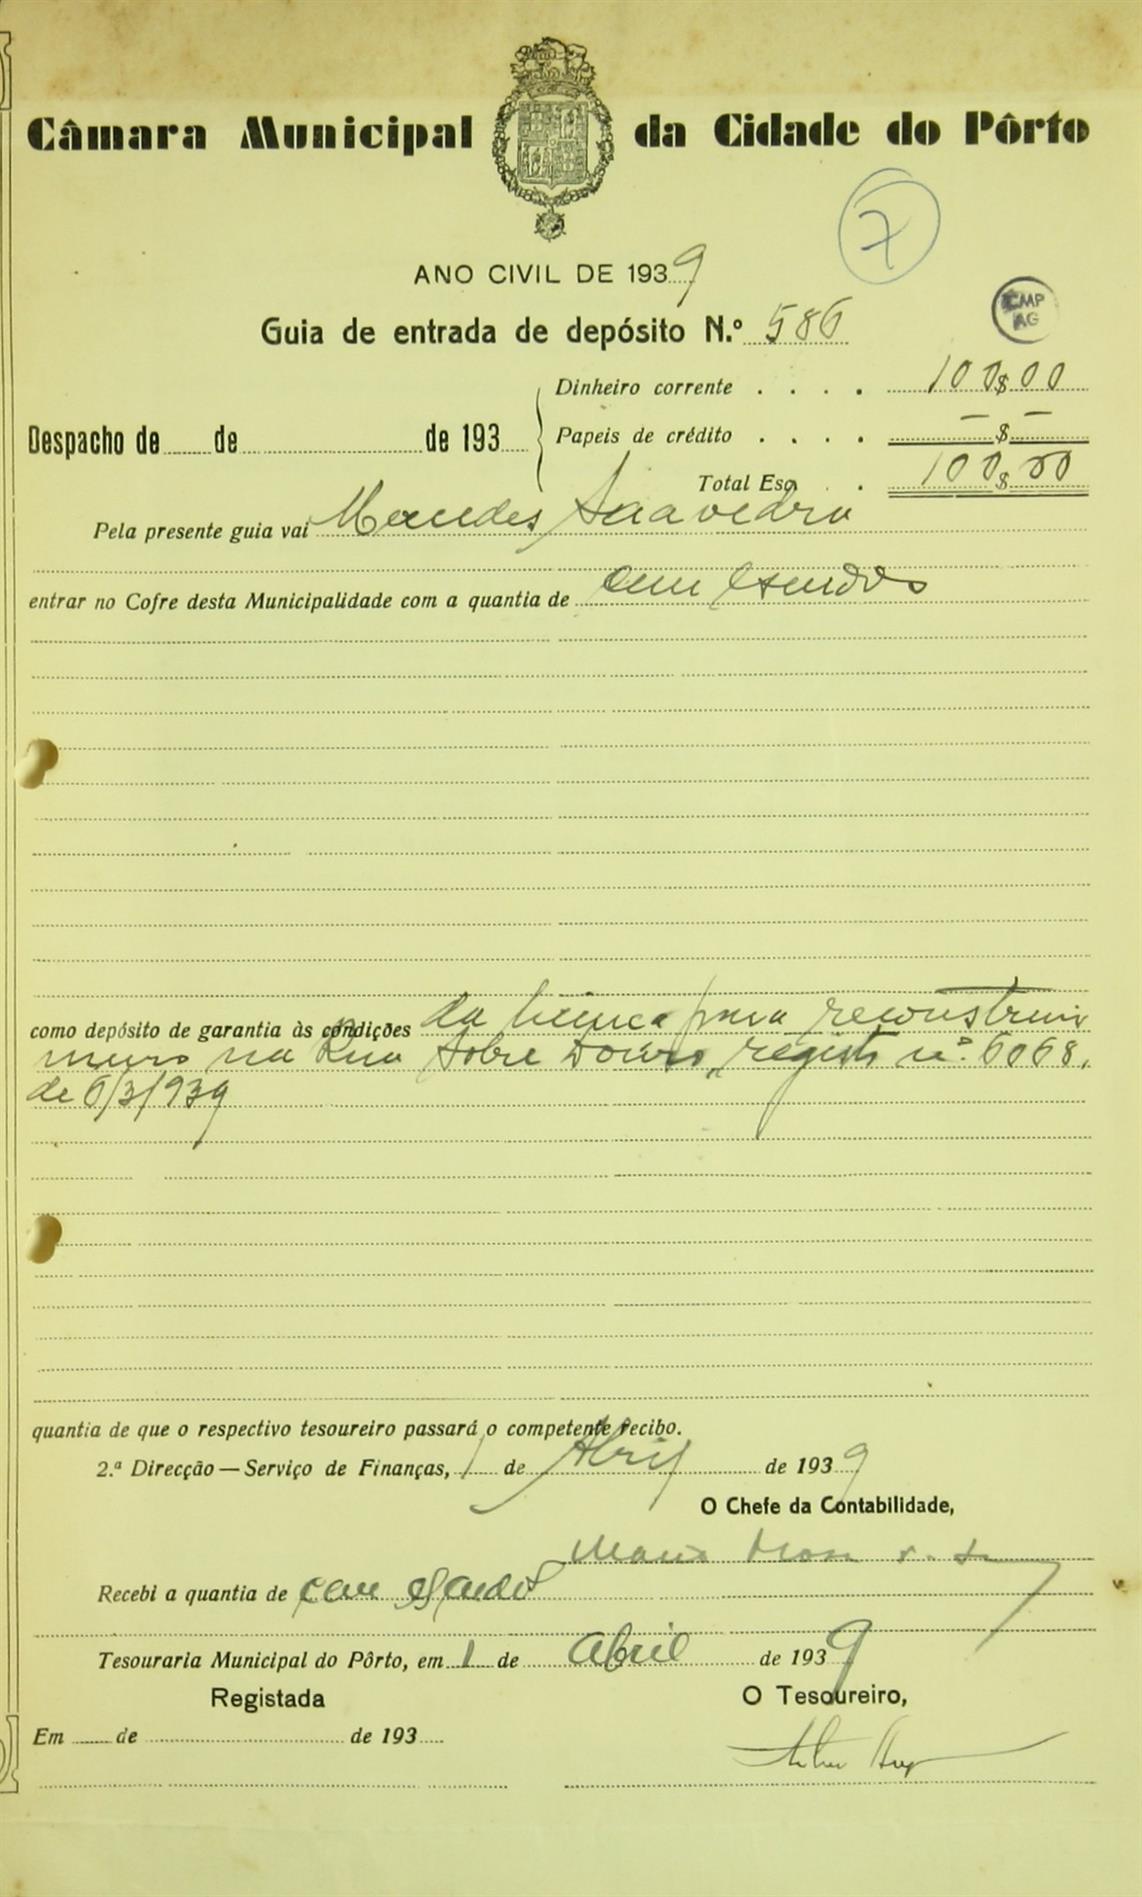 Câmara Municipal da Cidade do Pôrto
7
ANO CIVIL DE 1939
CMP
AG
Guia de entrada de depósito N.º 586
Dinheiro corrente . . . . 100$00
Despacho de ...... de ...... de 193....
Papeis de crédito . . . . —$—
Total Esc. . . 100$00
Pela presente guia vai Mendes Saavedra
entrar no Cofre desta Municipalidade com a quantia de cem escudos
como depósito de garantia às condições da licença para reconstruir
muro na Rua Sobre Douro, registo nº. 6068,
de 6/3/939
quantia de que o respectivo tesoureiro passará o competente recibo.
2.ª Direcção — Serviço de Finanças, 1 de Abril de 1939
O Chefe da Contabilidade,
Recebi a quantia de cem escudos
Tesouraria Municipal do Pôrto, em 1 de Abril de 1939
Registada
O Tesoureiro,
Em ...... de ...... de 193....